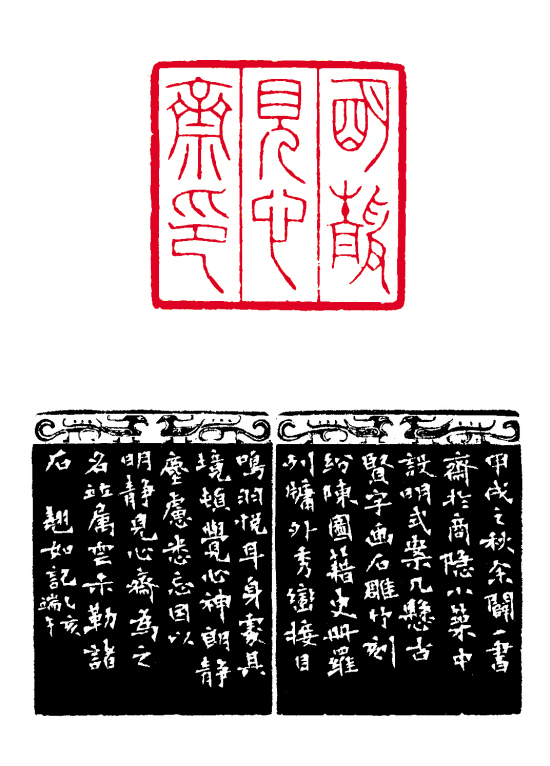 明靜
見心
齋印
甲戌之秋余闢一書
齋於商隐小築中
設明式案几懸古
賢字画石雕竹刻
紛陳圖籍史册羅
列牖外秀巒接目
鳴羽悦耳身處其
境頓覺心神朗静
塵慮悉忘因以
明静見心齋為之
名竝属雲禾勒諸
石 翘如記乙亥
端午